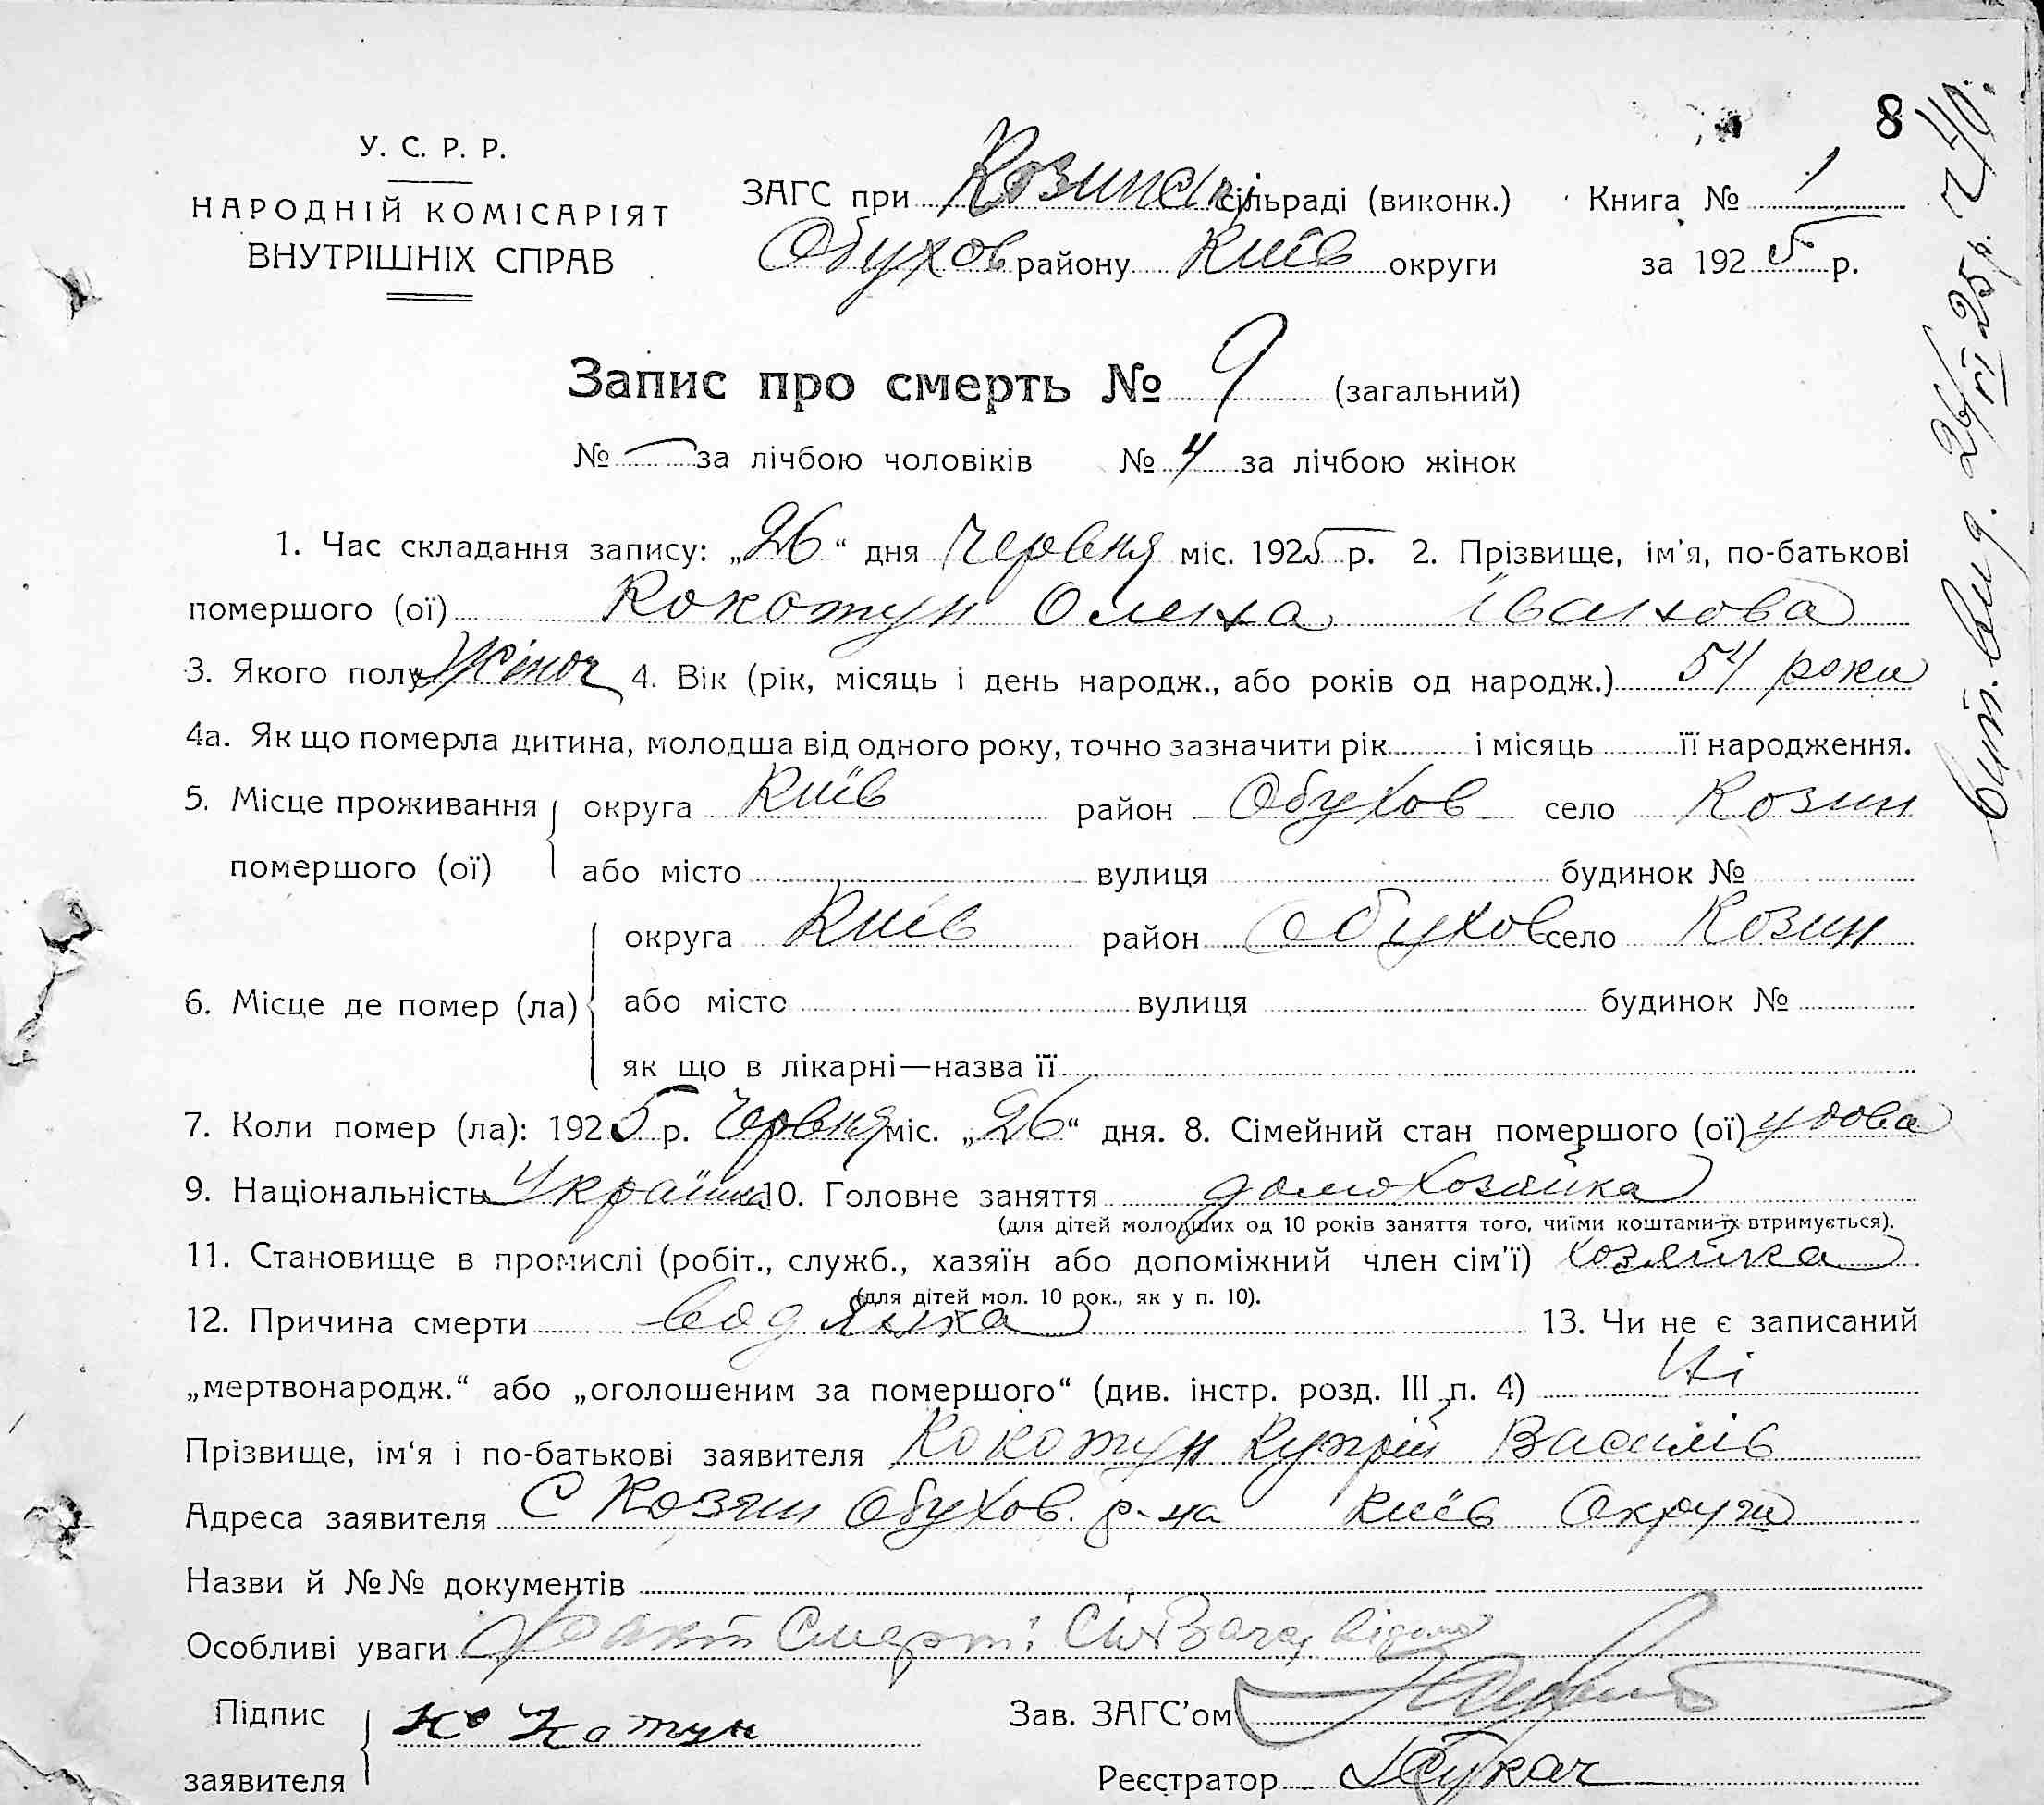 8
У. С. Р. Р.
НАРОДНІЙ КОМІСАРІЯТ
ВНУТРІШНІХ СПРАВ
ЗАГС при Козинськ сільраді (виконк.) Книга № 1
Обухов району Київ округи за 1925 р.
Запис про смерть № 9 (загальний)
№ — за лічбою чоловіків № 4 за лічбою жінок
1. Час складання запису: „26“ дня Червня міс. 1925 р. 2. Прізвище, ім'я, по-батькові
помершого (ої) Кокотун Олена Іванова
3. Якого полу Жіноч 4. Вік (рік, місяць і день народж., або років од народж.) 54 роки
4а. Як що померла дитина, молодша від одного року, точно зазначити рік і місяць її народження.
5. Місце проживання округа Київ район Обухов село Козин
помершого (ої) або місто вулиця будинок №
округа Київ район Обухов село Козин
6. Місце де помер (ла) або місто вулиця будинок №
як що в лікарні—назва її
7. Коли помер (ла): 1925 р. Червня міс. „26“ дня. 8. Сімейний стан помершого (ої) удова
9. Національність Українка 10. Головне заняття домохозяйка
(для дітей молодших од 10 років заняття того, чиїми коштами їх втримується).
11. Становище в промислі (робіт., служб., хазяїн або допоміжний член сім'ї) хозяйка
(для дітей мол. 10 рок., як у п. 10).
12. Причина смерти водянка 13. Чи не є записаний
„мертвонародж.“ або „оголошеним за помершого“ (див. інстр. розд. III п. 4) Ні
Прізвище, ім'я і по-батькові заявителя Кокотун Купрій Василів
Адреса заявителя С Козин Обухов. р-на Київ Округи
Назви й №№ документів
Особливі уваги Факт Смерті
Підпис
заявителя Кокотун
Зав. ЗАГС'ом
Реєстратор
Вип. вид. 26/VI 25 р. 740.